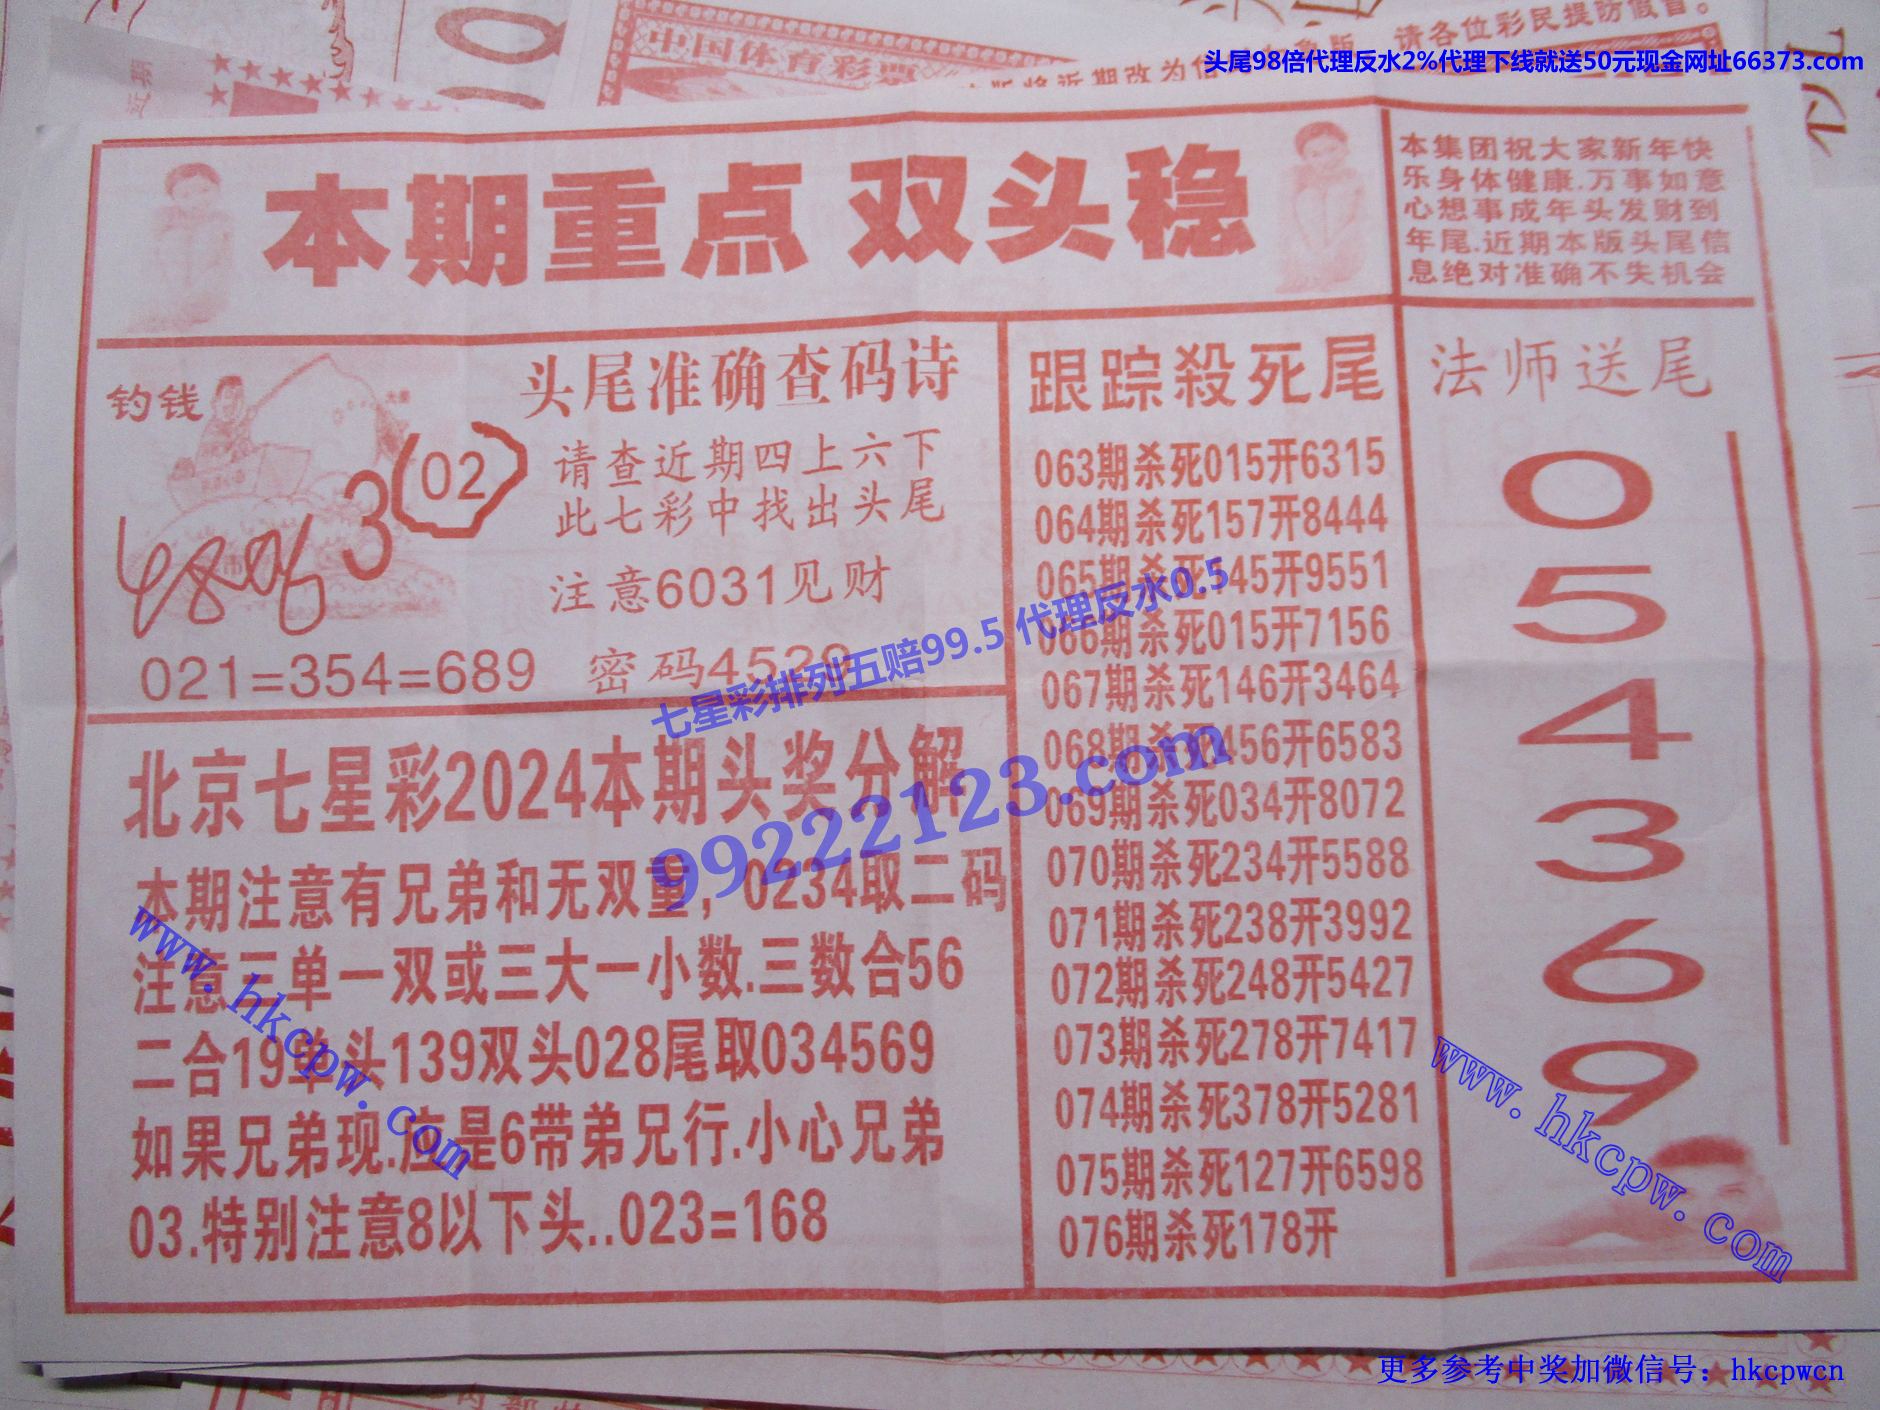 请各位彩民提防假冒。
中国体育彩票
头尾98倍代理反水2%代理下线就送50元现金网址66373.com
本期重点 双头稳
本集团祝大家新年快
乐身体健康.万事如意
心想事成年头发财到
年尾.近期本版头尾信
息绝对准确不失机会
钓钱
3
02
头尾准确查码诗
请查近期四上六下
此七彩中找出头尾
注意6031见财
021=354=689
密码4529
跟踪殺死尾
063期杀死015开6315
064期杀死157开8444
065期杀死145开9551
066期杀死015开7156
067期杀死146开3464
068期杀死456开6583
069期杀死034开8072
070期杀死234开5588
071期杀死238开3992
072期杀死248开5427
073期杀死278开7417
074期杀死378开5281
075期杀死127开6598
076期杀死178开
法师送尾
0
5
4
3
6
9
七星彩排列五赔99.5 代理反水0.5
99222123.com
北京七星彩2024本期头奖分解
本期注意有兄弟和无双重，0234取二码
注意三单一双或三大一小数.三数合56
二合19单头139双头028尾取034569
如果兄弟现.应是6带弟兄行.小心兄弟
03.特别注意8以下头..023=168
www.hkcpw.com
www.hkcpw.com
更多参考中奖加微信号：hkcpwcn